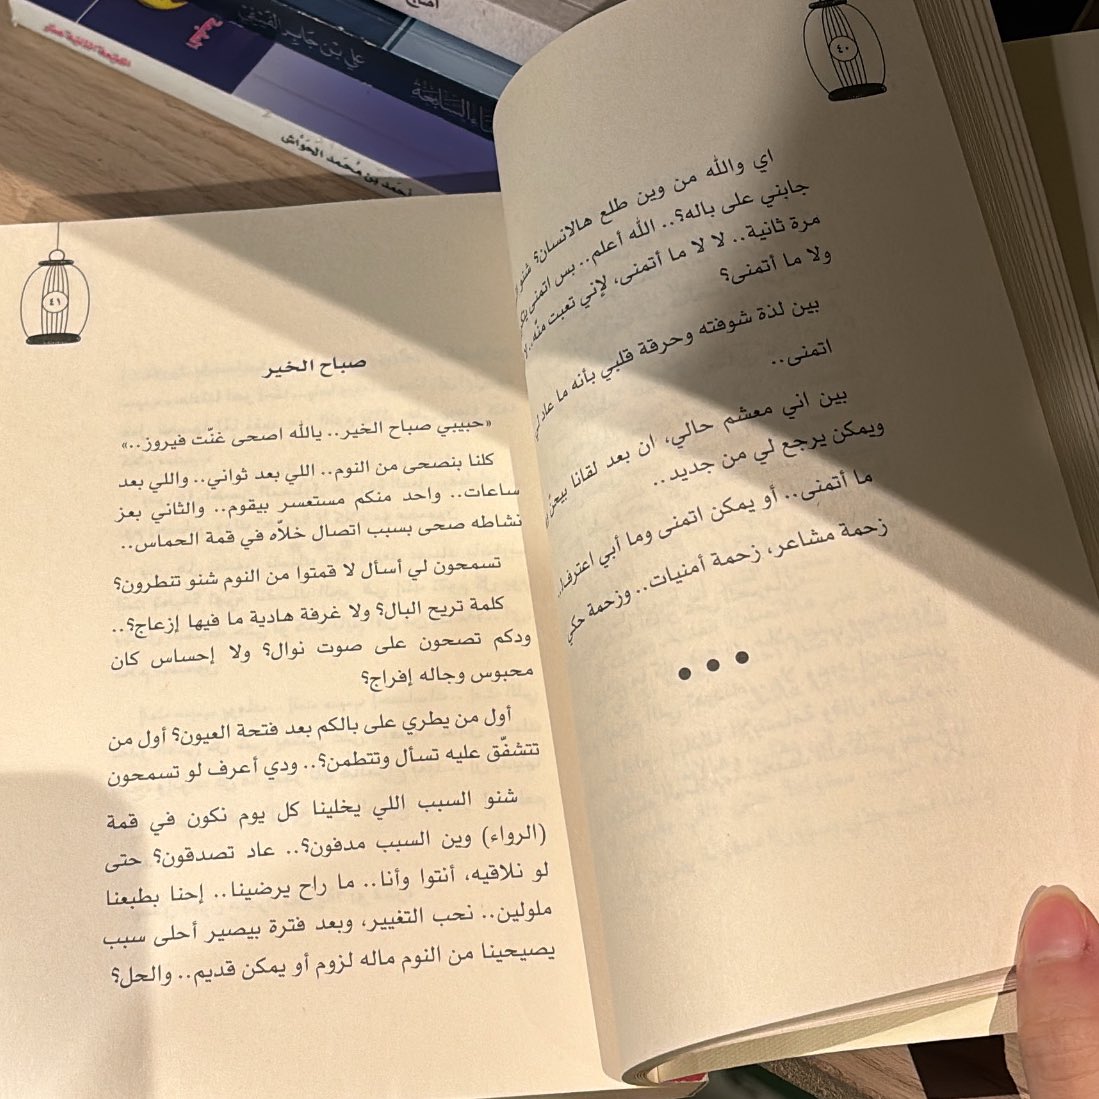 أصبح
علي بن جابر الفيفي
أحمد بن محمد الحواش
٤٠
اي والله من وين طلع هالانسان؟ شنو
جابني على باله؟.. الله أعلم.. بس اتمنى
مرة ثانية.. لا لا ما أتمنى، لإني تعبت منّه..
ولا ما أتمنى؟
بين لذة شوفته وحرقة قلبي بأنه ما عاد لي
اتمنى..
بين اني معشم حالي، ان بعد لقانا بيحنّ
ويمكن يرجع لي من جديد..
ما أتمنى.. أو يمكن اتمنى وما أبي اعترف..
زحمة مشاعر، زحمة أمنيات.. وزحمة حكي
٤١
صباح الخير
«حبيبي صباح الخير.. يالله اصحى غنّت فيروز..»
كلنا بنصحى من النوم.. اللي بعد ثواني.. واللي بعد
ساعات.. واحد منكم مستعسر بيقوم.. والثاني بعز
نشاطه صحى بسبب اتصال خلاّه في قمة الحماس..
تسمحون لي أسأل لا قمتوا من النوم شنو تنطرون؟
كلمة تريح البال؟ ولا غرفة هادية ما فيها إزعاج؟..
ودكم تصحون على صوت نوال؟ ولا إحساس كان
محبوس وجاله إفراج؟
أول من يطري على بالكم بعد فتحة العيون؟ أول من
تتشفّق عليه تسأل وتتطمن؟.. ودي أعرف لو تسمحون
شنو السبب اللي يخلينا كل يوم نكون في قمة
(الرواء) وين السبب مدفون؟.. عاد تصدقون؟ حتى
لو نلاقيه، أنتوا وأنا.. ما راح يرضينا.. إحنا بطبعنا
ملولين.. نحب التغيير، وبعد فترة بيصير أحلى سبب
يصيحينا من النوم ماله لزوم أو يمكن قديم.. والحل؟